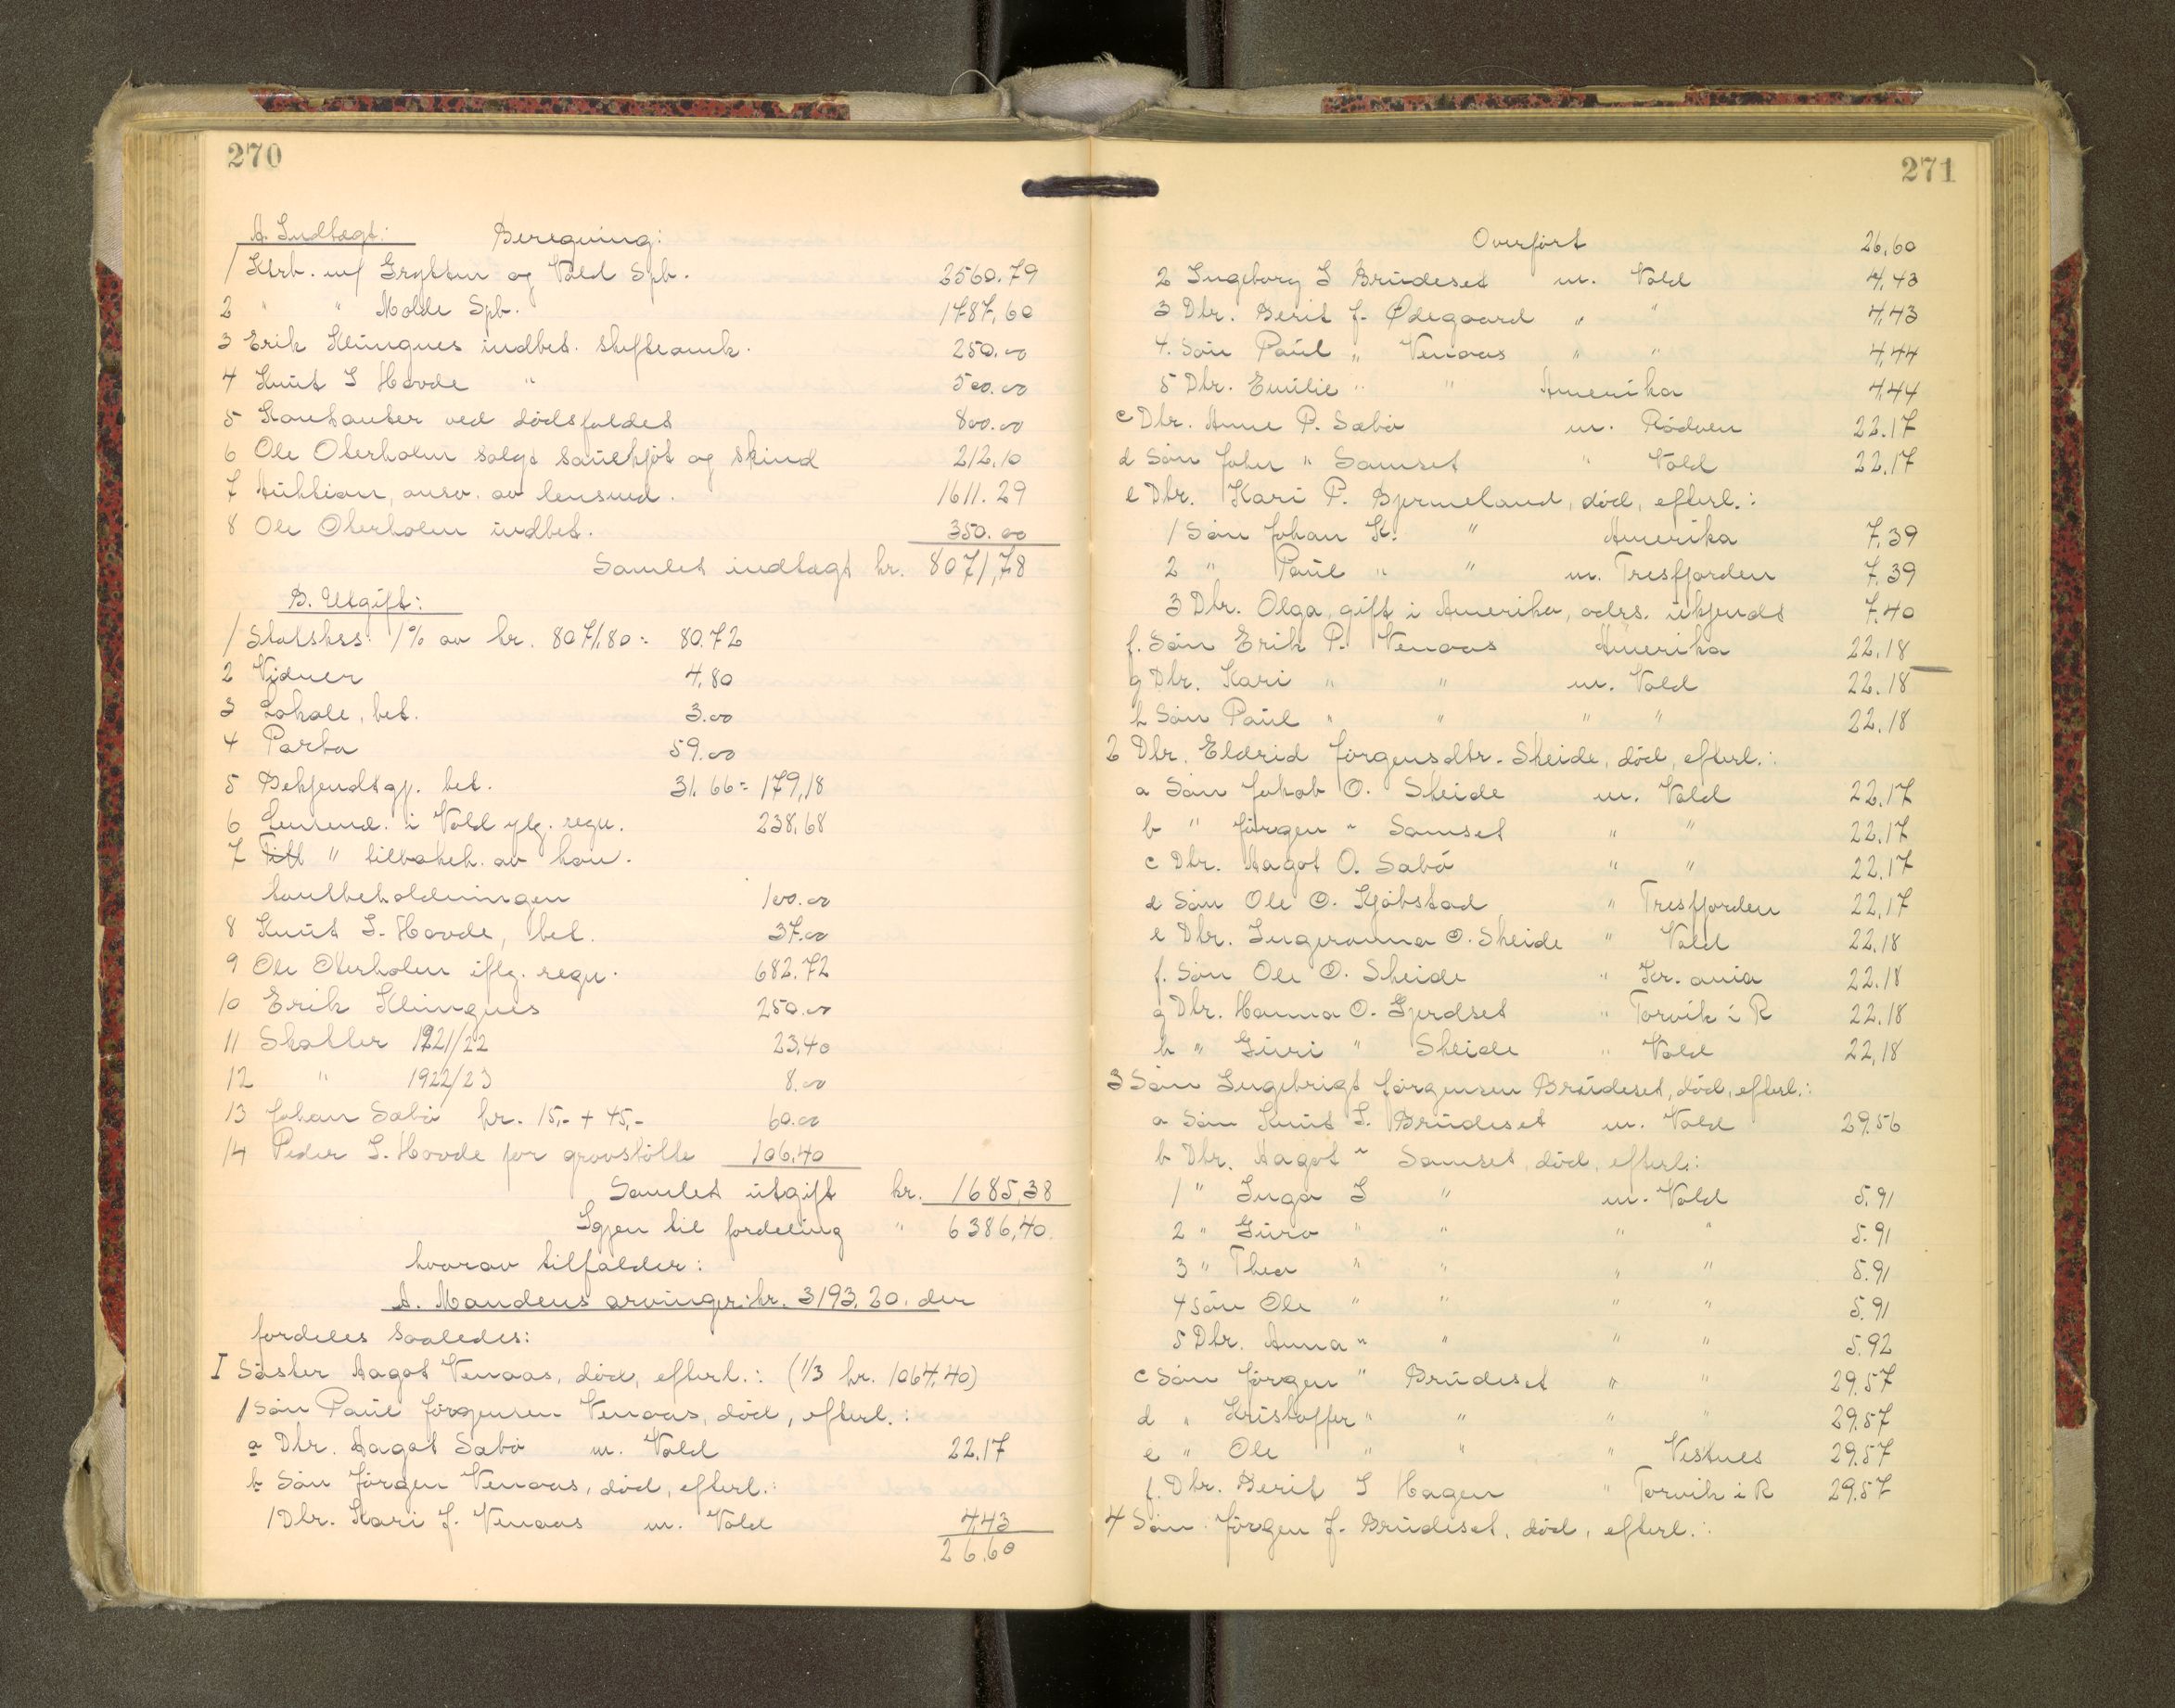 270
A. Indtægt: Beregning:
1 Ktrb. m/ Grytten og Vold Spb. 2560.79
2 " " Molde Spb. 1787,60
3 Erik Klungnes indbet. skifteauk. 250.00
4 Knut I Hovde " 500.00
5 Kontanter ved dödsfaldet 800.00
6 Ole Oterholm solgt sauekjöt og skind 212.10
7 Auktion, ansv. av lensmd. 1611.29
8 Ole Oterholm indbet. 350.00
Samlet indtægt kr. 8071,78
B. Utgift:
1 Statskss: 1% av kr. 8071.80 = 80.72
2 Vidner 4,80
3 Lokale, bet. 3.00
4 Porto 59.00
5 Bekjendtgj. bet. 31.66 = 179,18
6 Lensmd. i Vold iflg. regn. 238,68
7 Till " tilbakeb. av kon-
tantbeholdningen 100.00
8 Knut I. Hovde, bet. 37.00
9 Ole Oterholm iflg. regn. 682.72
10 Erik Klungnes 250.00
11 Skatter 1921/22 23,40
12 " 1922/23 8.00
13 Johan Sæbö kr. 15,- + 45,- 60.00
14 Peder I. Hovde for gravstötte 106,40
Samlet utgift kr. 1685,38
Igjen til fordeling " 6386,40.
hvorav tilfalder:
A. Mandens arvinger: kr. 3193,20. der
fordeles saaledes:
I Söster Aagot Venaas, död, efterl.: (1/3 kr. 1064.40)
1 Sön Paul Jörgensen Venaas, död, efterl.:
a Dtr. Aagot Sæbö m. Vold 22.17
b Sön Jörgen Venaas, död, efterl.:
1 Dtr. Kari J. Venaas m. Vold 4,43
26.60
271
Overfört 26,60
2 Ingeborg J Brudeset m. Vold 4,43
3 Dtr. Berit J. Ødegaard " " 4,43
4. Sön Paul " Venaas " " 4,44
5 Dtr. Emilie " " Amerika 4,44
c Dtr. Anne P. Sæbö m. Rödven 22.17
d Sön John " Samset " Vold 22.17
e Dtr. Kari P. Bjermeland, död, efterl.:
1 Sön Johan K. " Amerika 7,39
2 " Paul " " m. Tresfjorden 7,39
3 Dtr. Olga, gift i Amerika, adrs. ukjendt 7,40
f. Sön Erik P. Venaas Amerika 22.18
g Dtr. Kari " " m. Vold 22.18
h Sön Paul " " " " 22.18
2 Dtr. Eldrid Jörgensdtr. Skeide, död, efterl.:
a Sön Jakob O. Skeide m. Vold 22.17
b " Jörgen " Samset " " 22.17
c Dtr. Aagot O. Sæbö " " 22.17
d Sön Ole O. Kjöbstad " Tresfjorden 22,17
e Dtr. Ingeranna O. Skeide " Vold 22.18
f. Sön Ole O. Skeide " Kr.ania 22.18
g Dtr. Hanna O. Gjerdset " Torvik i R 22.18
h " Guri " Skeide " Vold 22,18
3 Sön Ingebrigt Jörgensen Brudeset, död, efterl.:
a Sön Knut I. Brudeset m. Vold 29.56
b Dtr. Aagot " Samset, död, efterl.:
1 " Inga I " m. Vold 5.91
2 " Guro " " " " 5.91
3 " Thea " " " " 5.91
4 Sön Ole " " " " 5.91
5 Dtr. Anna " " " " 5.92
c Sön Jörgen " Brudeset " " 29.57
d " Kristoffer " " " " 29.57
e " Ole " " " Vestnes 29.57
f. Dtr. Berit I Hagen " Torvik i R 29.57
4 Sön Jörgen J. Brudeset, död, efterl.: